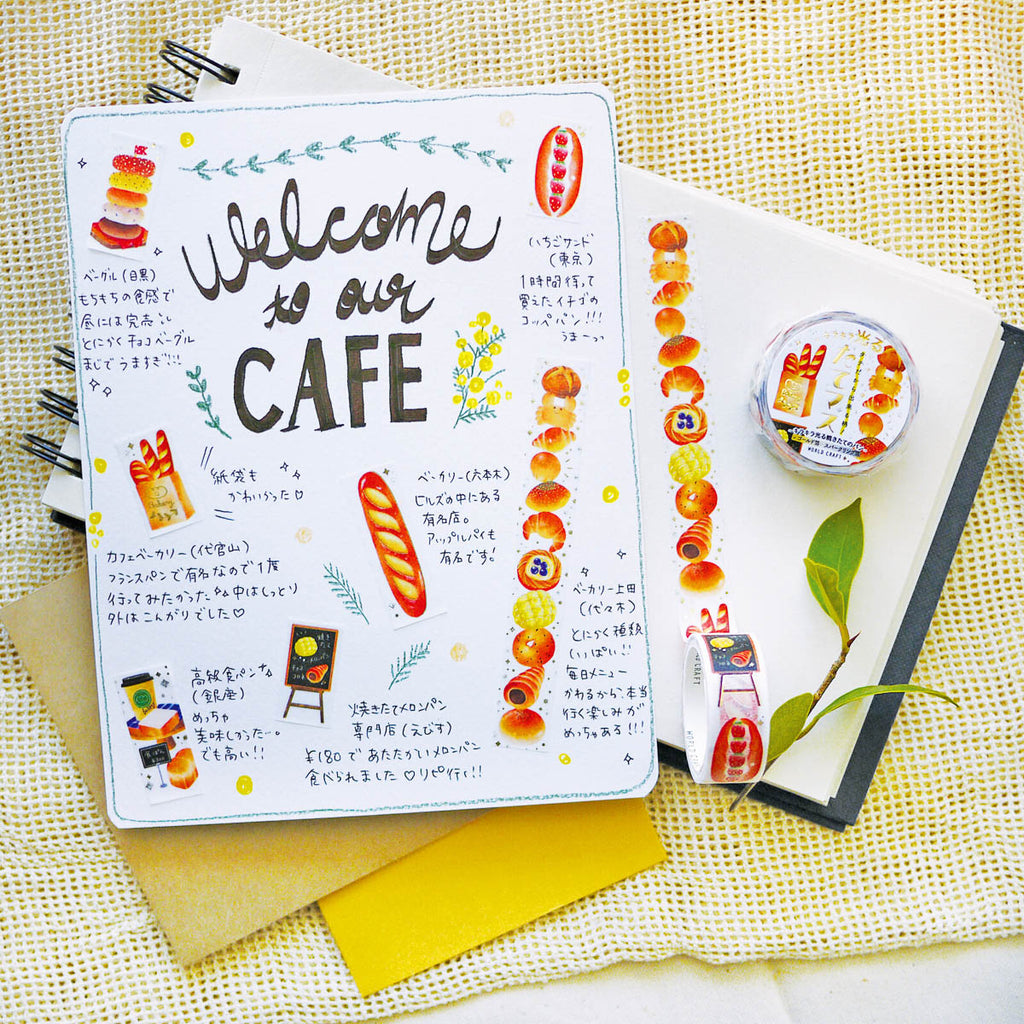 Welcome
to our
CAFE
ベーグル(目黒)
もちもちの食感で
昼には完売…し
とにかくチョコベーグル
まじでうますぎ!!!
いちごサンド
(東京)
1時間待って
買えたイチゴの
コッペパン!!!
うまーっ
紙袋も
かわいかった♡
ベーカリー(六本木)
ヒルズの中にある
有名店。
アップルパイも
有名です!
カフェベーカリー(代官山)
フランスパンで有名なので1度
行ってみたかった 中はしっとり
外はこんがりでした♡
ベーカリー上田
(代々木)
とにかく種類
いっぱい!!
毎日メニュー
かわるから、本当
行く楽しみが
めっちゃある!!!
高級食パン
(銀座)
めっちゃ
美味しかった…。
でも高い!!
焼きたてメロンパン
専門店(えびす)
¥180であたたかいメロンパン
食べられました♡リピ行く!!
キラキラ光る焼きたてのパン
WORLD CRAFT
WORLD CRAFT